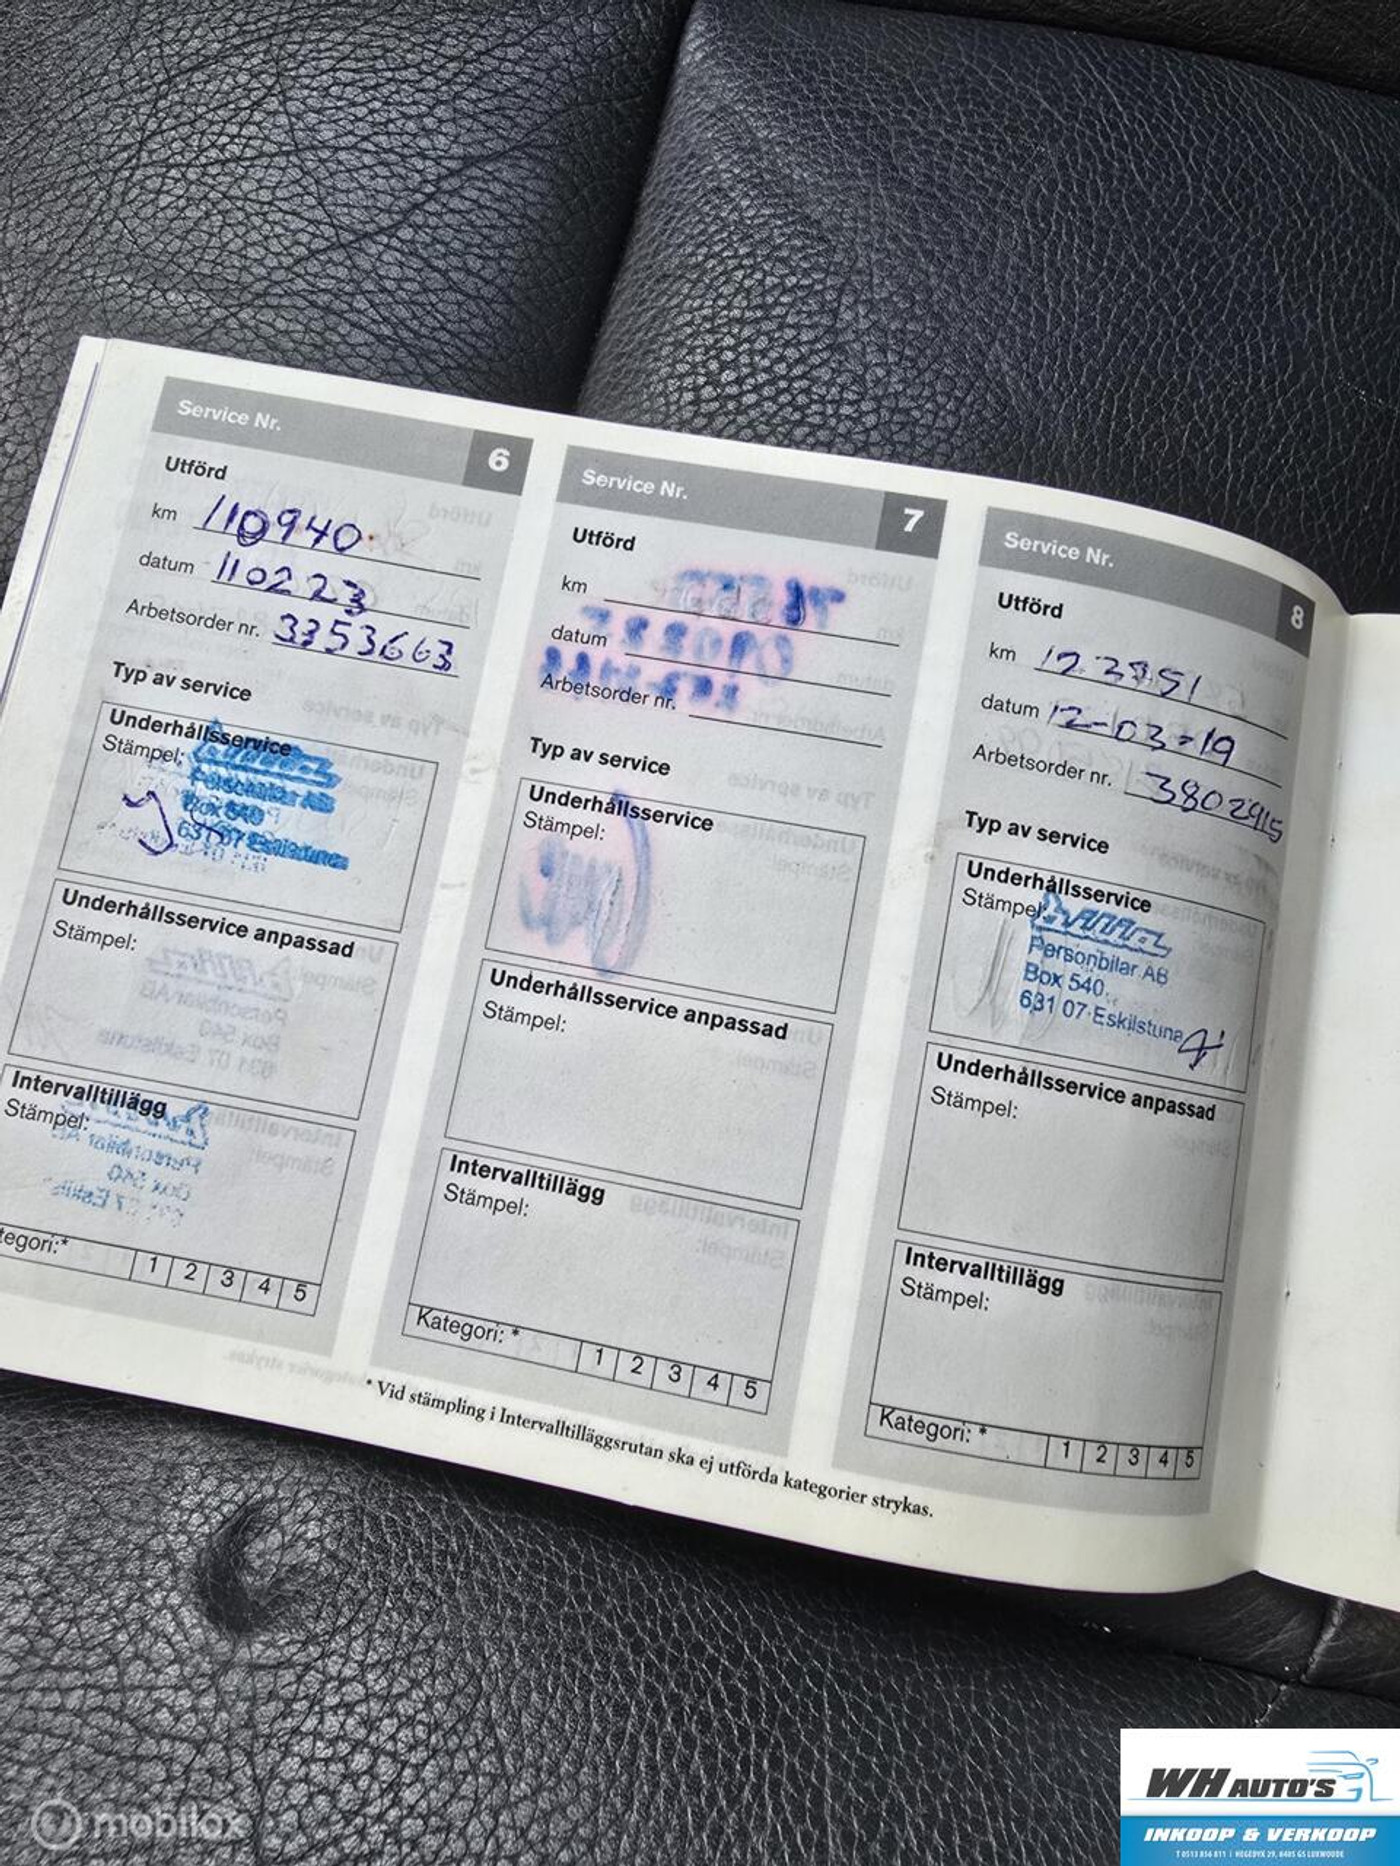 Service Nr. 6
Utförd
km 110940
datum 110223
Arbetsorder nr. 3353663
Typ av service
Underhållsservice
Stämpel:
Personbilar AB
Box 540
631 07 Eskilstuna
Underhållsservice anpassad
Stämpel:
Intervalltillägg
Stämpel:
tegori:* 1 2 3 4 5
Service Nr. 7
Utförd
km
datum
Arbetsorder nr.
Typ av service
Underhållsservice
Stämpel:
Underhållsservice anpassad
Stämpel:
Intervalltillägg
Stämpel:
Kategori: * 1 2 3 4 5
Service Nr. 8
Utförd
km
datum 12-03-19
Arbetsorder nr. 3802915
Typ av service
Underhållsservice
Stämpel:
Personbilar AB
Box 540
631 07 Eskilstuna
Underhållsservice anpassad
Stämpel:
Intervalltillägg
Stämpel:
Kategori: * 1 2 3 4 5
* Vid stämpling i Intervalltilläggsrutan ska ej utförda kategorier strykas.
mobilox
WH AUTO'S
INKOOP & VERKOOP
T 0513 856 811 | HEGEDYK 29, 8405 GS LUXWOUDE